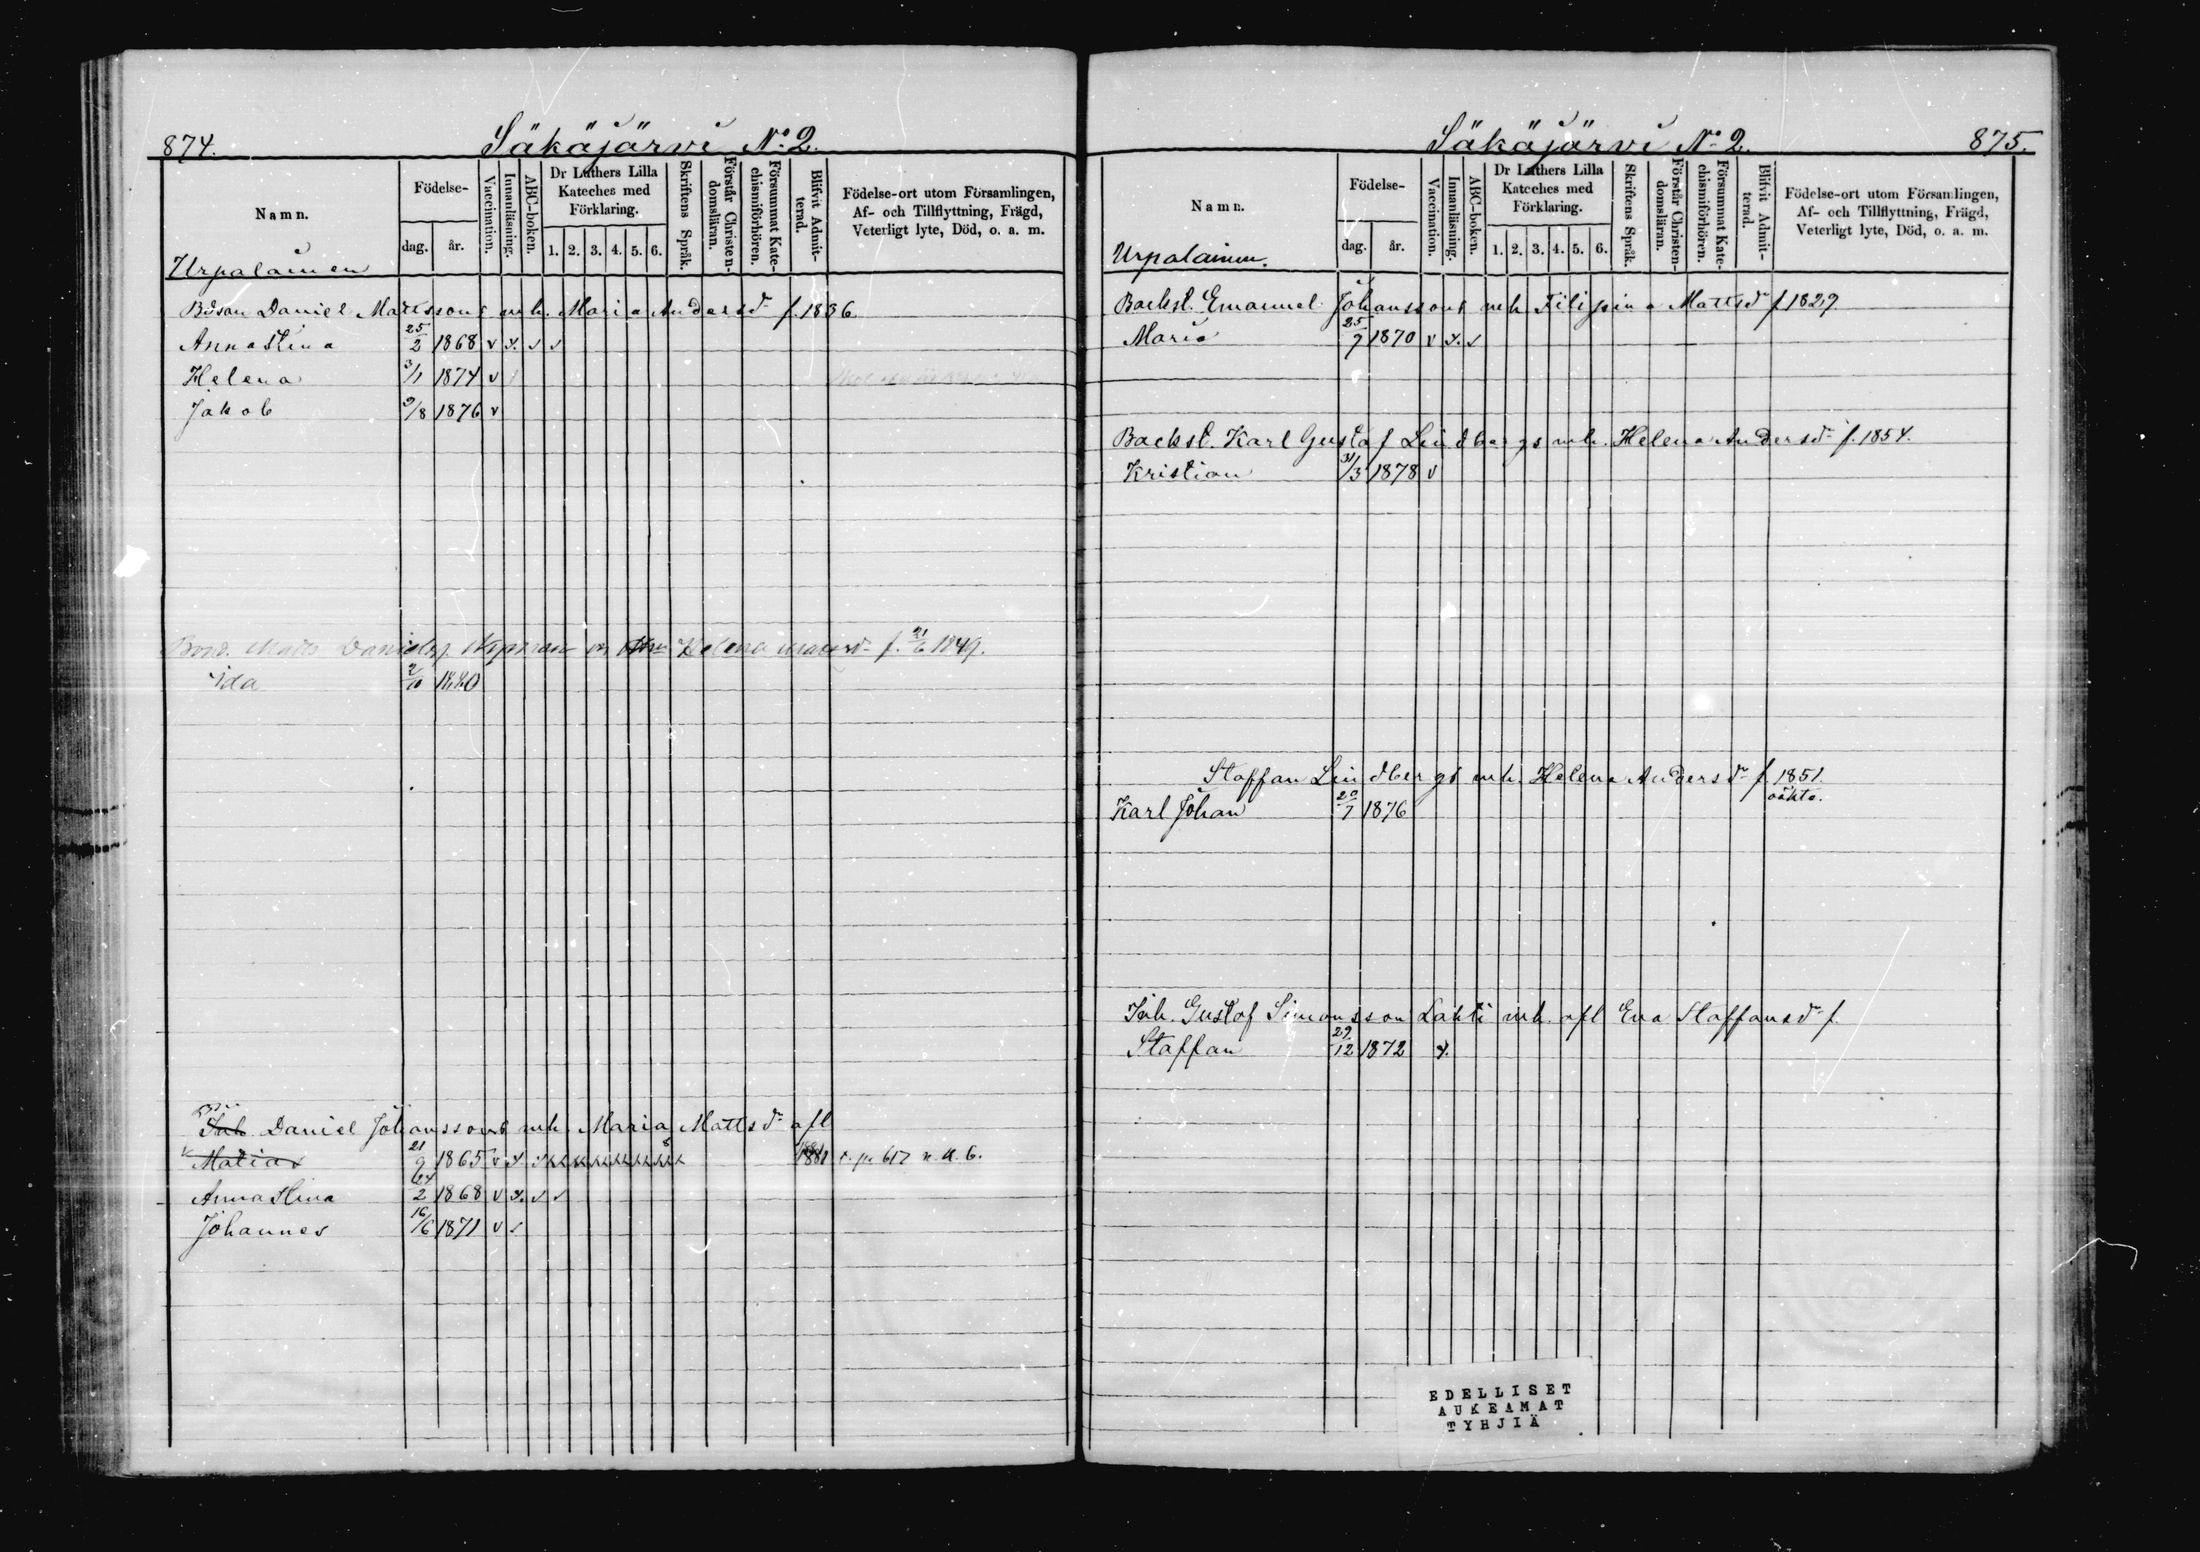 874. Säkäjärvi No 2.
Namn. Födelse- dag. år. Vaccination. Innanläsning. ABC-boken. Dr Luthers Lilla Kateches med Förklaring. 1. 2. 3. 4. 5. 6. Skriftens Språk. Förstår Christendomsläran. Försummat Katechismiförhören. Blifvit Admitterad. Födelse-ort utom Församlingen, Af- och Tillflyttning, Frägd, Veterligt lyte, Död, o. a. m.
Urpalainen
Bdson Daniel Mattssons mh. Maria Andersd f. 1836
Anna Stina 25/2 1868 v x. v v
Helena 3/1 1874 v
Jakob 9/8 1876 v
Bond. Matts Danielss. Helena f. 21/6 1849.
Ida 2/10 1880
Inh. Daniel Johanssons mh. Maria Mattsd afl
Matias 21/9 1865 v x 1881 617
Anna Stina 24/2 1868 v x. v v
Johannes 16/6 1871 v v
Säkäjärvi No 2. 875.
Namn. Födelse- dag. år. Vaccination. Innanläsning. ABC-boken. Dr Luthers Lilla Kateches med Förklaring. 1. 2. 3. 4. 5. 6. Skriftens Språk. Förstår Christendomsläran. Försummat Katechismiförhören. Blifvit Admitterad. Födelse-ort utom Församlingen, Af- och Tillflyttning, Frägd, Veterligt lyte, Död, o. a. m.
Urpalainen.
Backst. Emanuel Johanssons mh Filipina Mattsd f 1829
Maria 25/9 1870 v x. v
Backst. Karl Gustaf Lindbergs mh. Helena Andersd f. 1854.
Kristian 31/3 1878 v
Staffan Lindbergs mh. Helena Andersd f 1851.
oäkta.
Karl Johan 20/7 1876
Inh. Gustaf Simonsson Lahti mh. afl Eva Staffansd f.
Staffan 29/12 1872 x.
EDELLISET
AUKEAMAT
TYHJIÄ